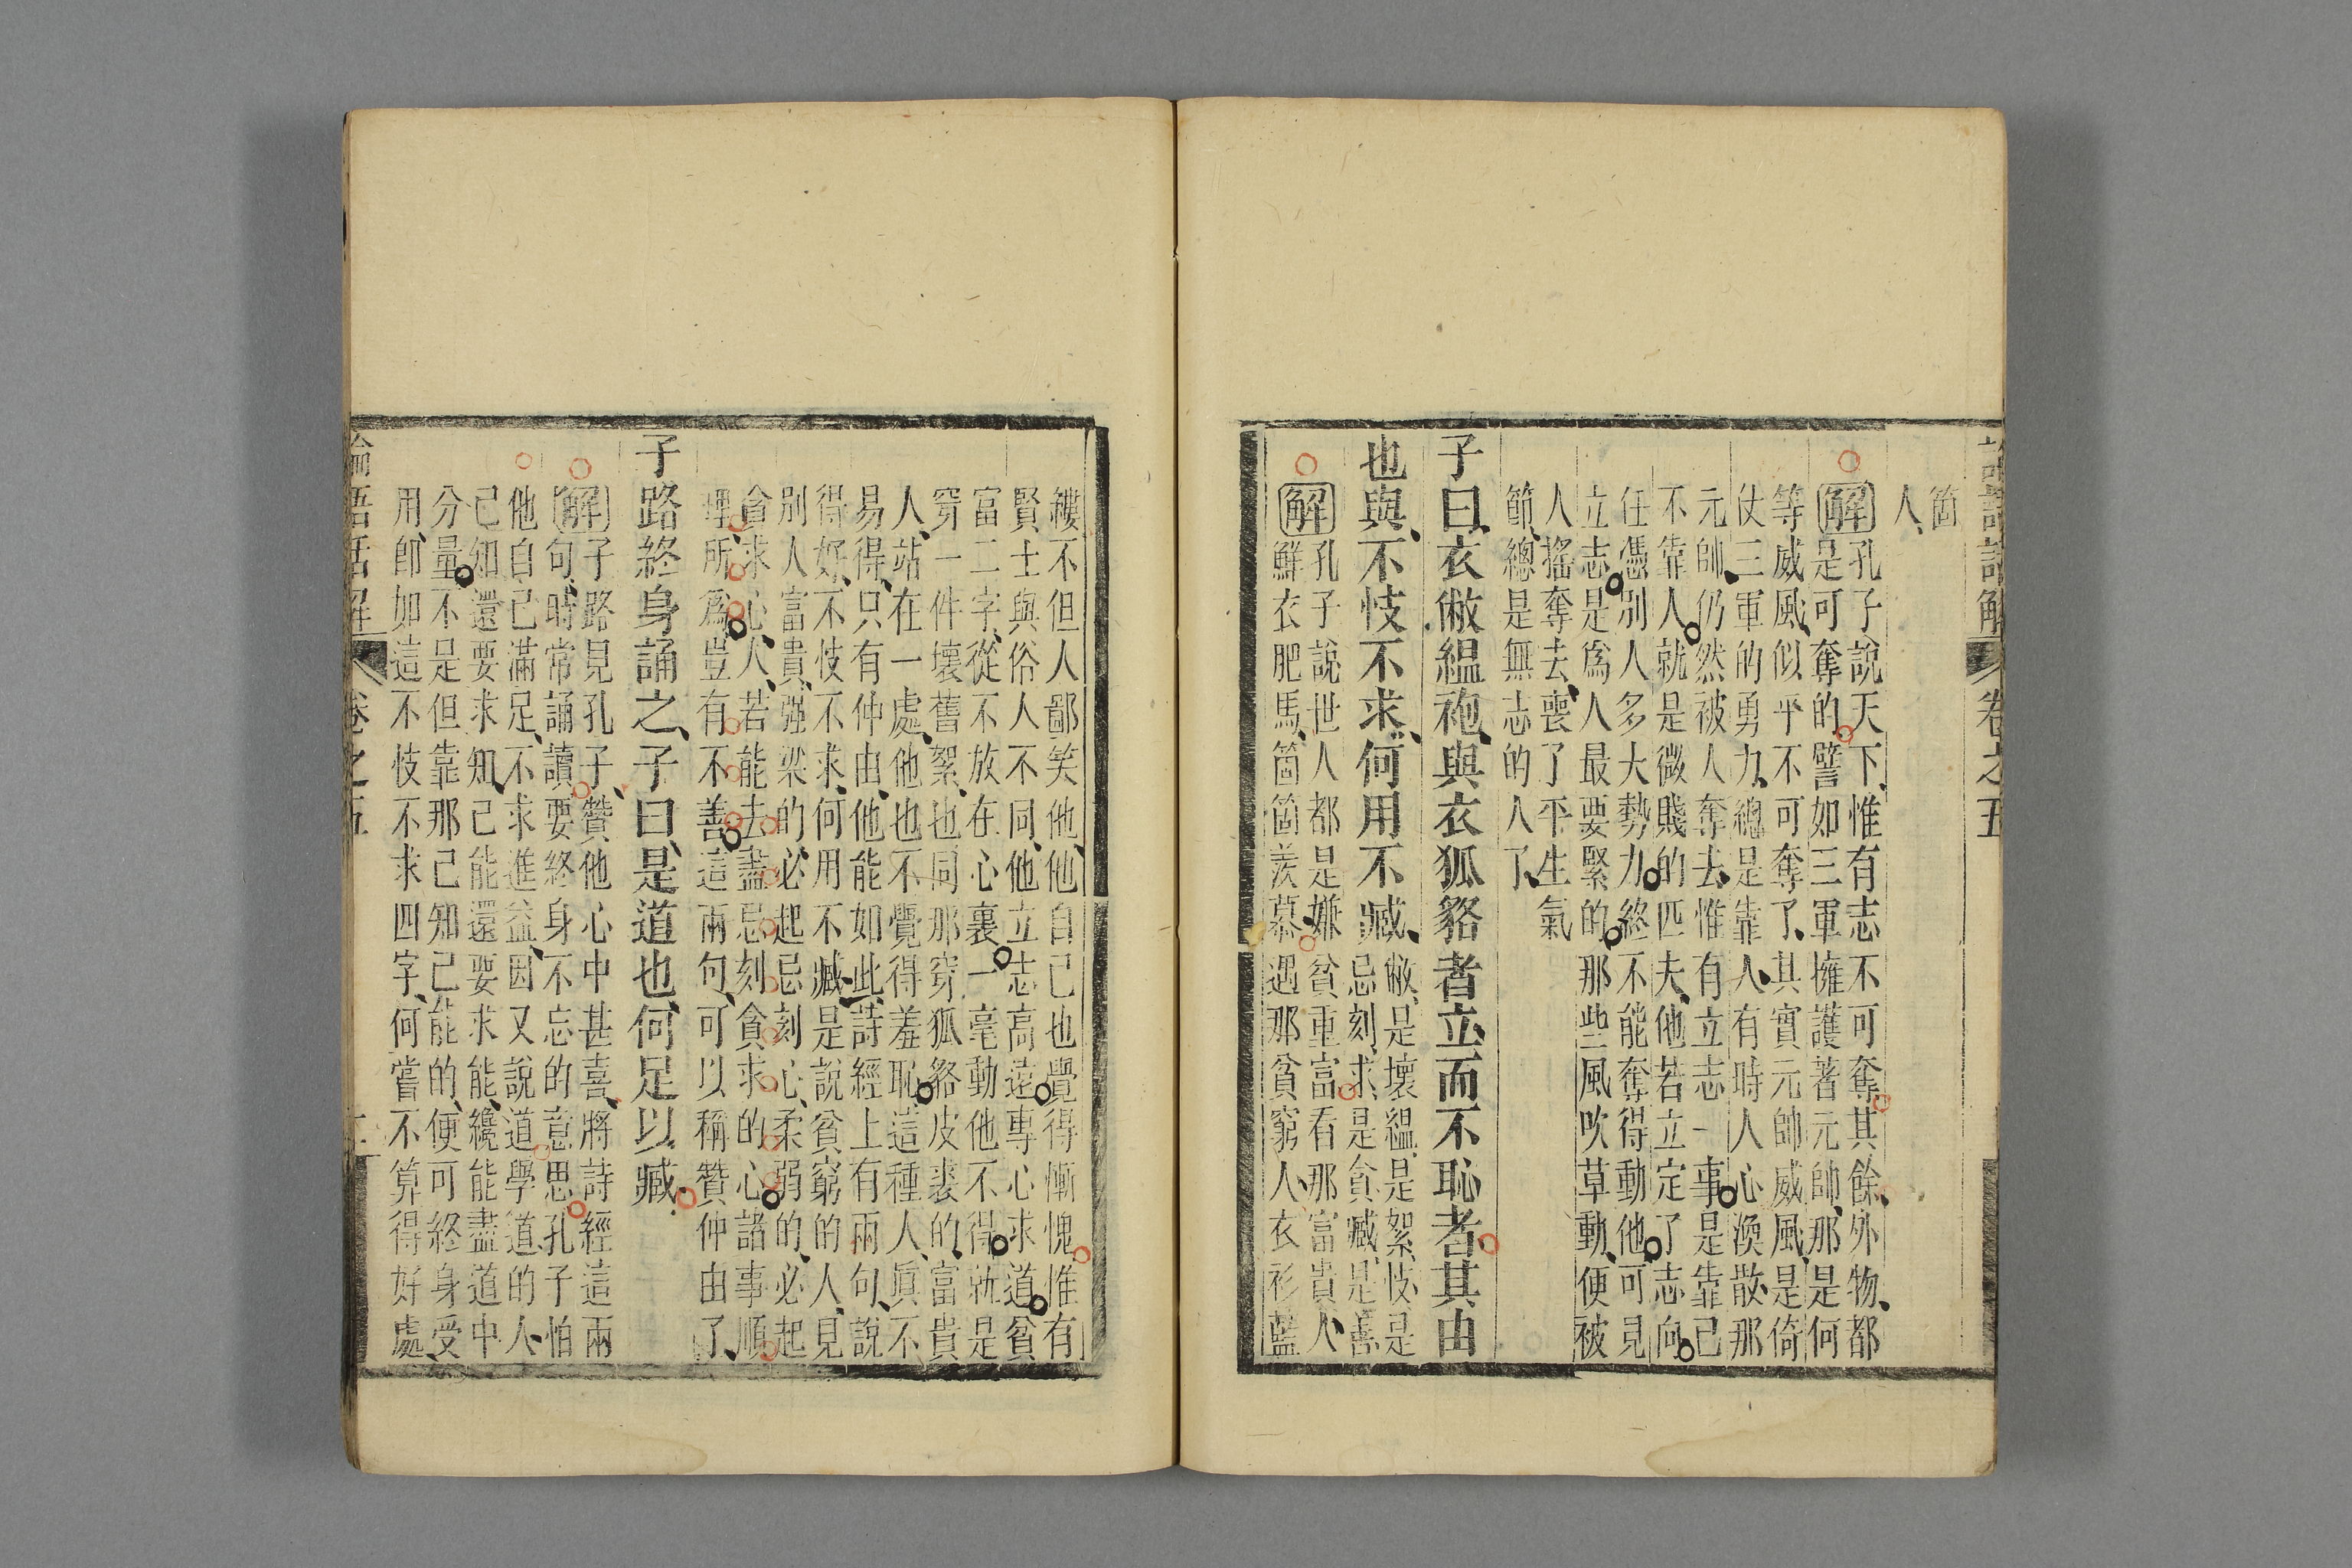 論語話解 卷之五
箇
人、
解 孔子說天下、惟有志不可奪、其餘、外物、都
是可奪的、譬如三軍擁護著元帥、那是何
等威風、似乎不可奪了、其實元帥威風、是倚
仗三軍的勇力、總是靠人、有時人心渙散、那
元帥、仍然被人奪去、惟有立志一事、是靠己
不靠人、就是微賤的匹夫、他若立定了志向、
任憑別人多大勢力、終不能奪得動他、可見
立志、是爲人最要緊的、那些風吹草動、便被
人搖奪去、喪了平生氣
節、總是無志的人了、
子曰、衣敝縕袍、與衣狐貉者立、而不恥者、其由
也與、不忮不求、何用不臧、
敝、是壞縕、是絮、忮、是
忌刻、求、是貪、臧、是善、
解 孔子說世人都是嫌貧重富、看那富貴人、
鮮衣肥馬、箇箇羨慕、遇那貧窮人、衣衫藍
縷、不但人鄙笑他、他自己也覺得慚愧、惟有
賢士與俗人不同、他立志高遠、專心求道、貧
富二字、從不放在心裏、一毫動他不得、就是
穿一件壞舊絮、也同那穿狐貉皮裘的、富貴
人、站在一處、他也不覺得羞恥、這種人、眞不
易得、只有仲由、他能如此、詩經上有兩句、說
得好、不忮不求、何用不臧、是說貧窮的人、見
別人富貴、强梁的、必起忌刻心、柔弱的、必起
貪求心、人、若能去盡忌刻貪求的心、諸事順
理、所爲豈有不善、這兩句、可以稱贊仲由了、
子路終身誦之、子曰、是道也、何足以臧、
解 子路見孔子、贊他、心中甚喜、將詩經這兩
句、時常誦讀、要終身不忘的意思、孔子怕
他自己滿足、不求進益、因又說道、學道的人、
己知、還要求知、己能、還要求能、纔能盡道中
分量、不是但靠那己知己能的、便可終身受
用、卽如這不忮不求四字、何嘗不算得好處、
論語話解 卷之五